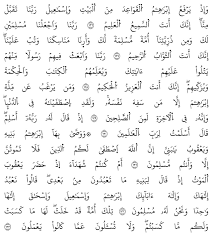 وَإِذْ يَرْفَعُ إِبْرَٰهِـۧمُ ٱلْقَوَاعِدَ مِنَ ٱلْبَيْتِ وَإِسْمَٰعِيلُ رَبَّنَا تَقَبَّلْ
مِنَّآ إِنَّكَ أَنتَ ٱلسَّمِيعُ ٱلْعَلِيمُ ۝ رَبَّنَا وَٱجْعَلْنَا مُسْلِمَيْنِ
لَكَ وَمِن ذُرِّيَّتِنَآ أُمَّةً مُّسْلِمَةً لَّكَ وَأَرِنَا مَنَاسِكَنَا وَتُبْ عَلَيْنَآ
إِنَّكَ أَنتَ ٱلتَّوَّابُ ٱلرَّحِيمُ ۝ رَبَّنَا وَٱبْعَثْ فِيهِمْ رَسُولًا مِّنْهُمْ
يَتْلُوا۟ عَلَيْهِمْ ءَايَٰتِكَ وَيُعَلِّمُهُمُ ٱلْكِتَٰبَ وَٱلْحِكْمَةَ
وَيُزَكِّيهِمْ إِنَّكَ أَنتَ ٱلْعَزِيزُ ٱلْحَكِيمُ ۝ وَمَن يَرْغَبُ عَن مِّلَّةِ
إِبْرَٰهِـۧمَ إِلَّا مَن سَفِهَ نَفْسَهُۥ وَلَقَدِ ٱصْطَفَيْنَٰهُ فِى ٱلدُّنْيَا
وَإِنَّهُۥ فِى ٱلْـَٔاخِرَةِ لَمِنَ ٱلصَّٰلِحِينَ ۝ إِذْ قَالَ لَهُۥ رَبُّهُۥٓ أَسْلِمْ
قَالَ أَسْلَمْتُ لِرَبِّ ٱلْعَٰلَمِينَ ۝ وَوَصَّىٰ بِهَآ إِبْرَٰهِـۧمُ بَنِيهِ
وَيَعْقُوبُ يَٰبَنِىَّ إِنَّ ٱللَّهَ ٱصْطَفَىٰ لَكُمُ ٱلدِّينَ فَلَا تَمُوتُنَّ
إِلَّا وَأَنتُم مُّسْلِمُونَ ۝ أَمْ كُنتُمْ شُهَدَآءَ إِذْ حَضَرَ يَعْقُوبَ
ٱلْمَوْتُ إِذْ قَالَ لِبَنِيهِ مَا تَعْبُدُونَ مِنۢ بَعْدِى قَالُوا۟ نَعْبُدُ
إِلَٰهَكَ وَإِلَٰهَ ءَابَآئِكَ إِبْرَٰهِـۧمَ وَإِسْمَٰعِيلَ وَإِسْحَٰقَ إِلَٰهًا
وَٰحِدًا وَنَحْنُ لَهُۥ مُسْلِمُونَ ۝ تِلْكَ أُمَّةٌ قَدْ خَلَتْ لَهَا مَا كَسَبَتْ
وَلَكُم مَّا كَسَبْتُمْ وَلَا تُسْـَٔلُونَ عَمَّا كَانُوا۟ يَعْمَلُونَ ۝